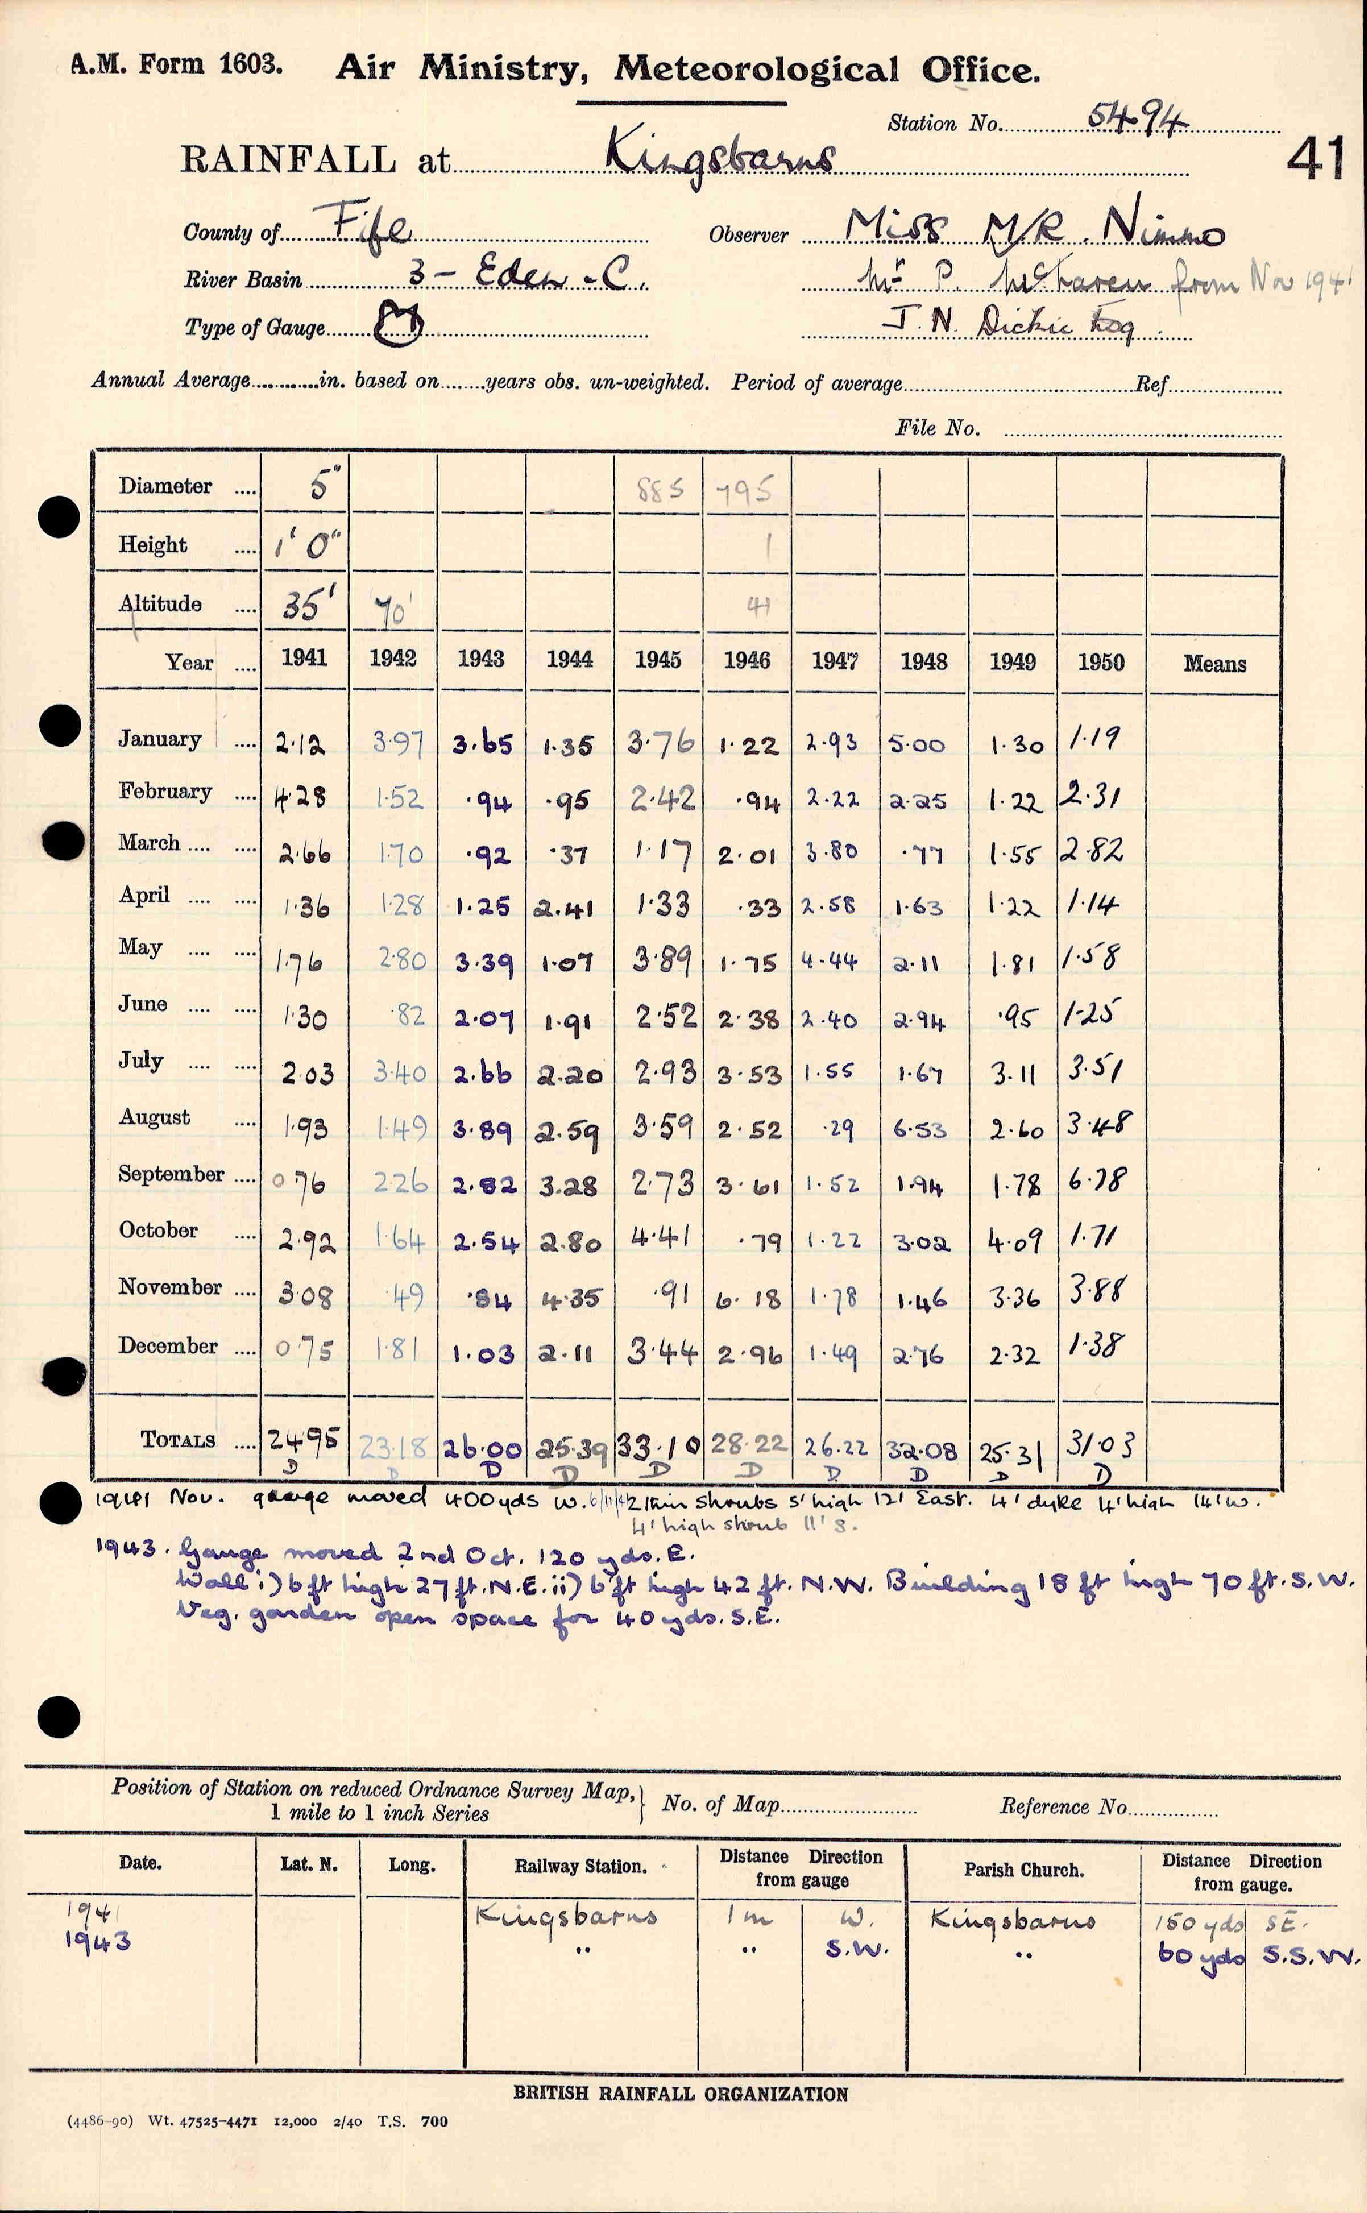 A.M. Form 1603. Air Ministry, Meteorological Office.
Station No. 5494
41
RAINFALL at Kingsbarns
County of Fife Observer Miss M/R. Nimmo
River Basin 3 - Eden - C. Mr P. McLaren from Nov 1941
Type of Gauge M J. N. Dickie Esq.
Annual Average............in. based on.......years obs. un-weighted. Period of average Ref.
File No.
Diameter .... 5" 885 795
Height .... 1' 0" 1
Altitude .... 35' 70' 41
Year .... 1941 1942 1943 1944 1945 1946 1947 1948 1949 1950 Means
January .... 2.12 3.97 3.65 1.35 3.76 1.22 2.93 5.00 1.30 1.19
February .... 4.28 1.52 .94 .95 2.42 .94 2.22 2.25 1.22 2.31
March .... .... 2.66 1.70 .92 .37 1.17 2.01 3.80 .77 1.55 2.82
April .... .... 1.36 1.28 1.25 2.41 1.33 .33 2.58 1.63 1.22 1.14
May .... .... 1.76 2.80 3.39 1.07 3.89 1.75 4.44 2.11 1.81 1.58
June .... .... 1.30 .82 2.07 1.91 2.52 2.38 2.40 2.94 .95 1.25
July .... .... 2.03 3.40 2.66 2.20 2.93 3.53 1.55 1.67 3.11 3.51
August .... 1.93 1.49 3.89 2.59 3.59 2.52 .29 6.53 2.60 3.48
September .... 0.76 2.26 2.82 3.28 2.73 3.61 1.52 1.94 1.78 6.78
October .... 2.92 1.64 2.54 2.80 4.41 .79 1.22 3.02 4.09 1.71
November .... 3.08 .49 .84 4.35 .91 6.18 1.78 1.46 3.36 3.88
December .... 0.75 1.81 1.03 2.11 3.44 2.96 1.49 2.76 2.32 1.38
TOTALS .... 24.95 23.18 26.00 25.39 33.10 28.22 26.22 32.08 25.31 31.03
D D D D D D D D D D
1941 Nov. gauge moved 400yds W. 6/11/42 thin shrubs 5' high 12' East. 4' dyke 4' high 14' W.
4' high shrub 11' S.
1943. Gauge moved 2nd Oct. 120 yds. E.
Wall i) 6 ft high 27 ft. N.E. ii) 6 ft high 42 ft. N.W. Building 18 ft high 70 ft. S.W.
Veg. garden open space for 40 yds. S.E.
Position of Station on reduced Ordnance Survey Map,
1 mile to 1 inch Series } No. of Map Reference No.
Date. Lat. N. Long. Railway Station. Distance Direction from gauge Parish Church. Distance Direction from gauge.
1941 Kingsbarns 1 m W. Kingsbarns 150 yds SE.
1943 " " S.W. " 60 yds S.S.W.
BRITISH RAINFALL ORGANIZATION
(4486-90) Wt. 47525-4471 12,000 2/40 T.S. 700